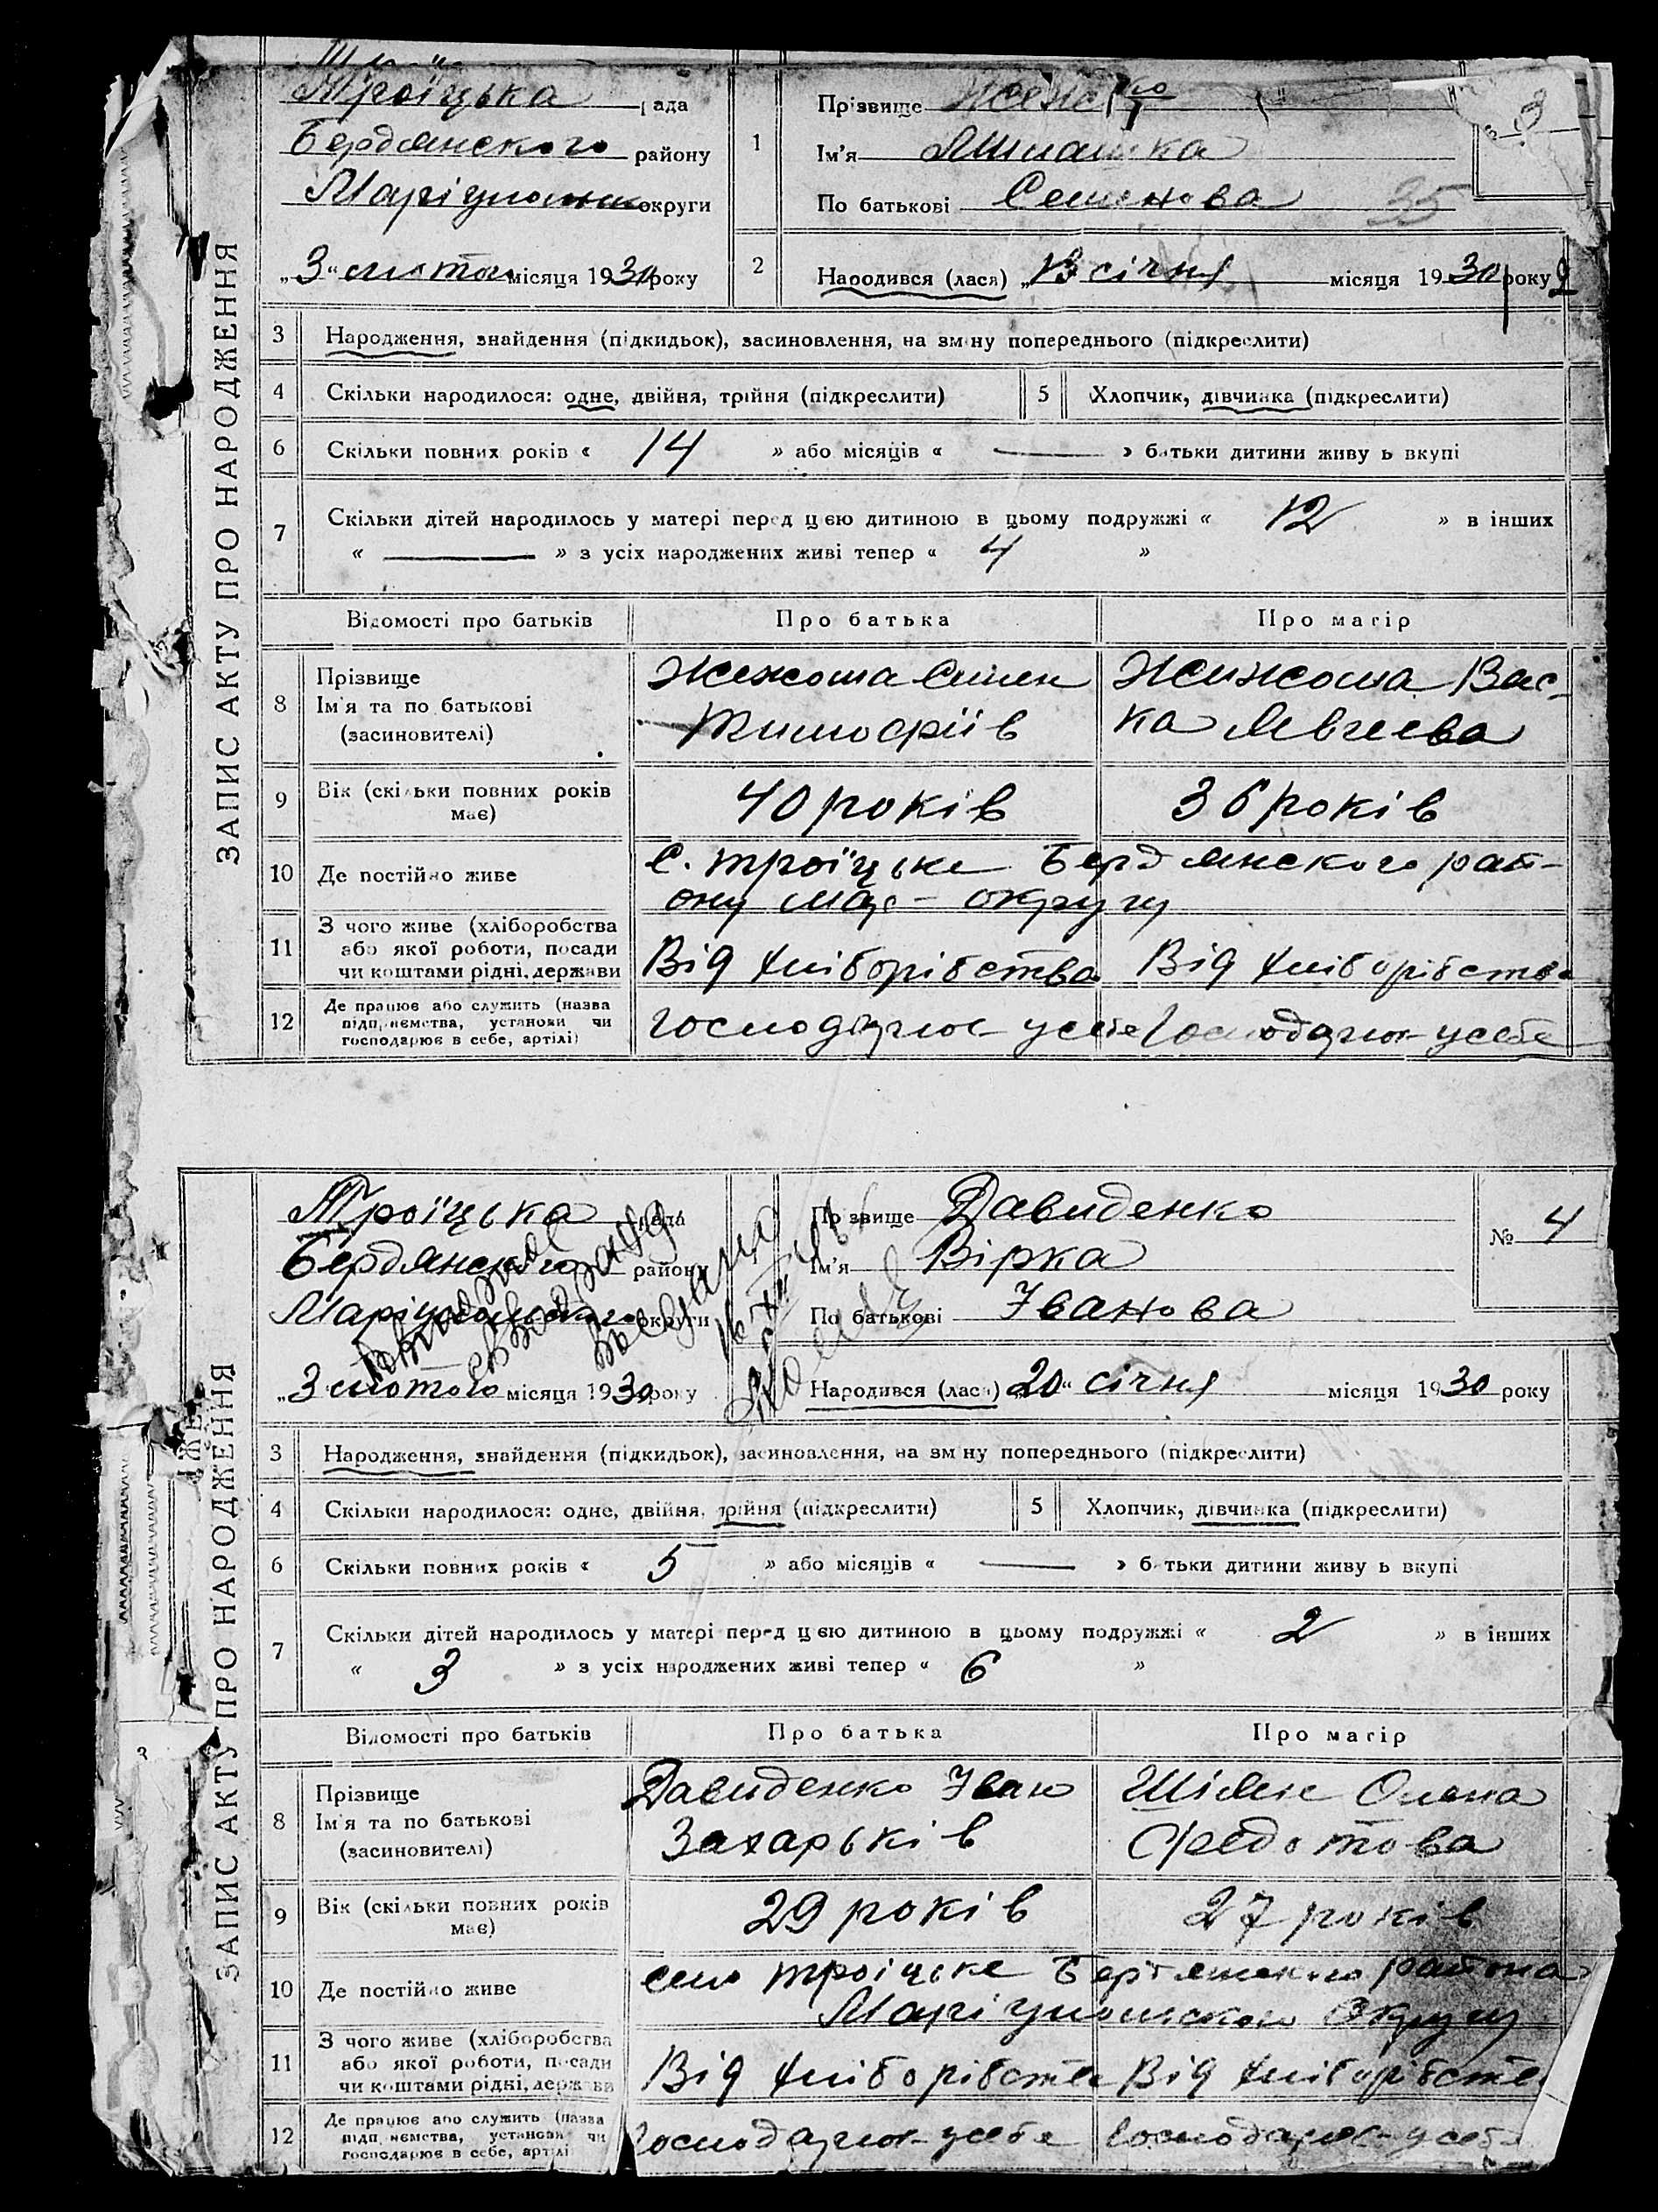 ЗАПИС АКТУ ПРО НАРОДЖЕННЯ
Троїцька рада
Бердянского району
округи
„3“ місяця 1930 року
1
Прізвище
Ім'я
По батькові Семенова
35
3
2
Народився (лася) „13 січня місяця 1930 року
3 Народження, знайдення (підкидьок), засиновлення, на зміну попереднього (підкреслити)
4 Скільки народилося: одне, двійня, трійня (підкреслити)
5 Хлопчик, дівчинка (підкреслити)
6 Скільки повних років « 14 » або місяців « — » батьки дитини живуть вкупі
7 Скільки дітей народилось у матері перед цією дитиною в цьому подружжі « 12 » в інших
« — » з усіх народжених живі тепер « 4 »
Відомості про батьків Про батька Про матір
8 Прізвище
Ім'я та по батькові
(засиновителі)
Тимофіїв
9 Вік (скільки повних років
має)
40 років 36 років
10 Де постійно живе
с. троїцьке Бердянского рай-
ону мар- округу
11 З чого живе (хліборобства
або якої роботи, посади
чи коштами рідні, держави
Від хліборібства Від хліборібства
12 Де працює або служить (назва
підприємства, установи чи
господарює в себе, артілі)
господарює усебе господарює усебе
ЗАПИС АКТУ ПРО НАРОДЖЕННЯ
Троїцька рада
Бердянского району
Маріупольского округи
„3 лютого місяця 1930 року
Прізвище Давиденко
Ім'я Вірка
По батькові Іванова
№ 4
Народився (лася) 20“ січня місяця 1930 року
3 Народження, знайдення (підкидьок), засиновлення, на зміну попереднього (підкреслити)
4 Скільки народилося: одне, двійня, трійня (підкреслити)
5 Хлопчик, дівчинка (підкреслити)
6 Скільки повних років « 5 » або місяців « — » батьки дитини живуть вкупі
7 Скільки дітей народилось у матері перед цією дитиною в цьому подружжі « 2 » в інших
« 3 » з усіх народжених живі тепер « 6 »
Відомості про батьків Про батька Про матір
8 Прізвище
Ім'я та по батькові
(засиновителі)
Давиденко Іван
Захарьків
Олена
Федотова
9 Вік (скільки повних років
має)
29 років 27 років
10 Де постійно живе
село троіцьке Бердянского района
Маріупольского Округу
11 З чого живе (хліборобства
або якої роботи, посади
чи коштами рідні, держави
Від хліборібства Від хліборібства
12 Де працює або служить (назва
підприємства, установи чи
господарює в себе, артілі
господарює усебе господарює усебе